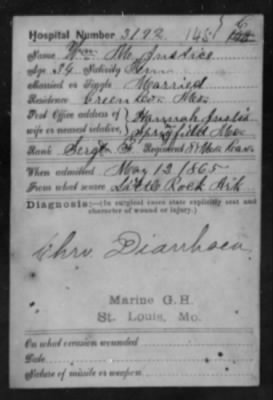 Hospital Number 3192
Name Wm M Justice
Age 34 Nativity Tenn
Married or Single Married
Residence Green Co. Mo.
Post Office address of Hannah Justice
wife or nearest relative, Springfield Mo.
Rank Sergt F Regiment 8" Mo Cav.
When admitted May 12 1865
From what source Little Rock Ark
Diagnosis:—(In surgical cases state explicitly seat and
character of wound or injury.)
Chro. Diarrhoea
Marine G.H.
St. Louis, Mo.
On what occasion wounded
Date
Nature of missile or weapon